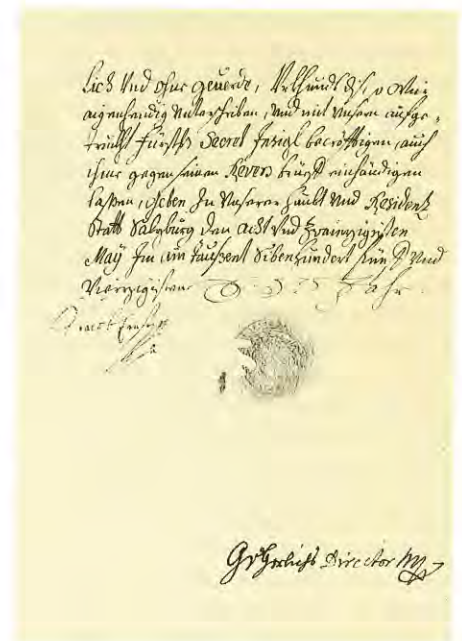 lich Und ohne geuerde, Urkhundt diß, So Wür
aigenhendig Unterschriben, Und mit Unsern aufge-
truckht Fürstl: Secret Insigl becräfftigen, auch
ihme gegen seinen Revers brieff einhändigen
laßen, Geben In Unserer Haubt Und Residenz
Statt Salzburg den acht Und Zwainzigisten
May Im ain Taußent Sibenhundert fünff Und
Vierzigisten Jahr.
Jacob Ernst
Director